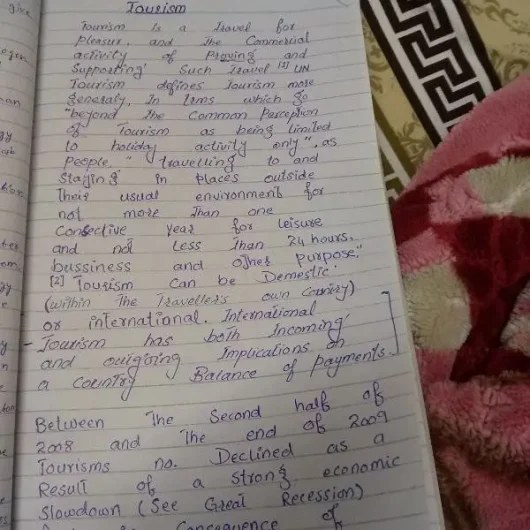 Tourism
Tourism is a travel for
pleasure, and the Commercial
activity of Proving and
Supporting Such Travel [1] UN
Tourism defines Tourism more
generaly, In trms which go
"beyond The Common Perception
of Tourism as being limited
to holiday activity only", as
People. "travelling to and
Staying in Places outside
Their usual environment for
not more Than one
Consective year for leisure
and not Less Than 24 hours,
bussiness and other Purpose."
[2] Tourism Can be Demestic
(within The Traveller's own Country)
or international. International
Tourism has both Incoming
and outgoing Implications on
a country Balance of Payments.
Between The Second half of
2008 and The end of 2009
Tourisms no. Declined as a
Result of a strong economic
Slowdown (See Great Recession)
Consequence of